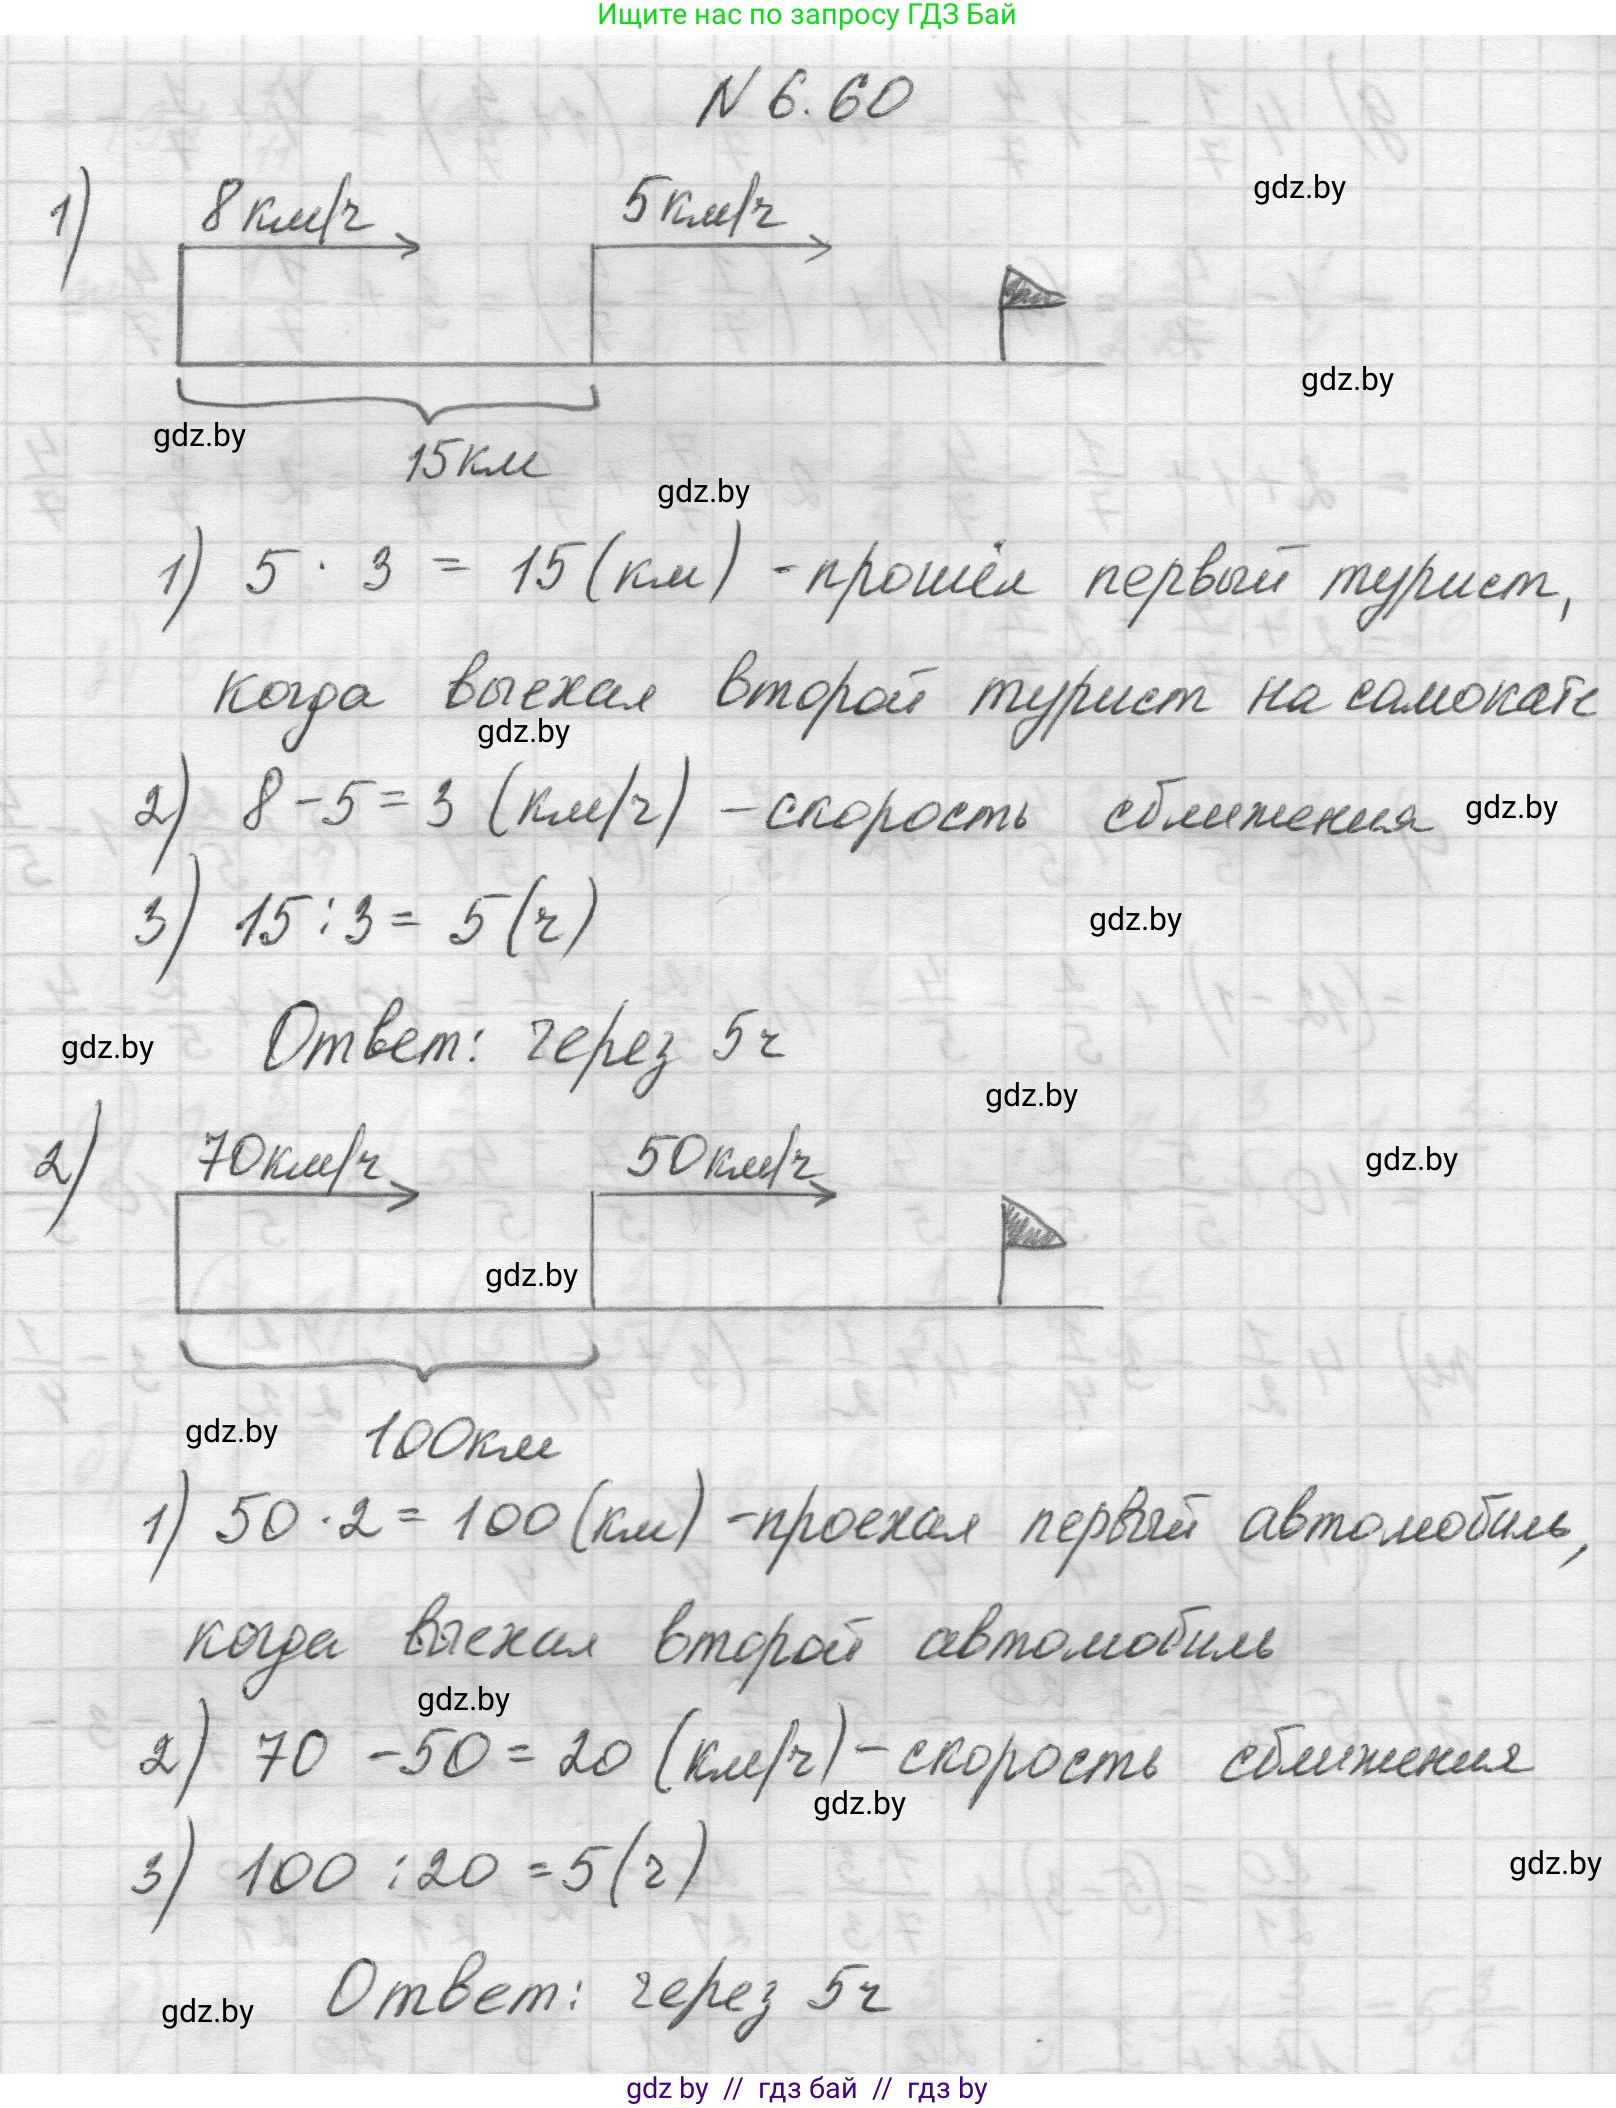 Ищите нас по запросу ГДЗ Бай
N 6.60
gdz.by
1) 8км/ч 5км/ч
gdz.by
gdz.by
15км
gdz.by
1) 5 · 3 = 15 (км) - прошёл первый турист,
когда выехал второй турист на самокате
gdz.by
2) 8 - 5 = 3 (км/ч) - скорость сближения
gdz.by
3) 15 : 3 = 5 (ч)
gdz.by
Ответ: через 5ч
gdz.by
gdz.by
2) 70км/ч 50км/ч
gdz.by
gdz.by
100км
gdz.by
1) 50 · 2 = 100 (км) - проехал первый автомобиль,
когда выехал второй автомобиль
gdz.by
2) 70 - 50 = 20 (км/ч) - скорость сближения
gdz.by
3) 100 : 20 = 5 (ч)
gdz.by
Ответ: через 5ч
gdz.by
gdz by // гдз бай // гдз by